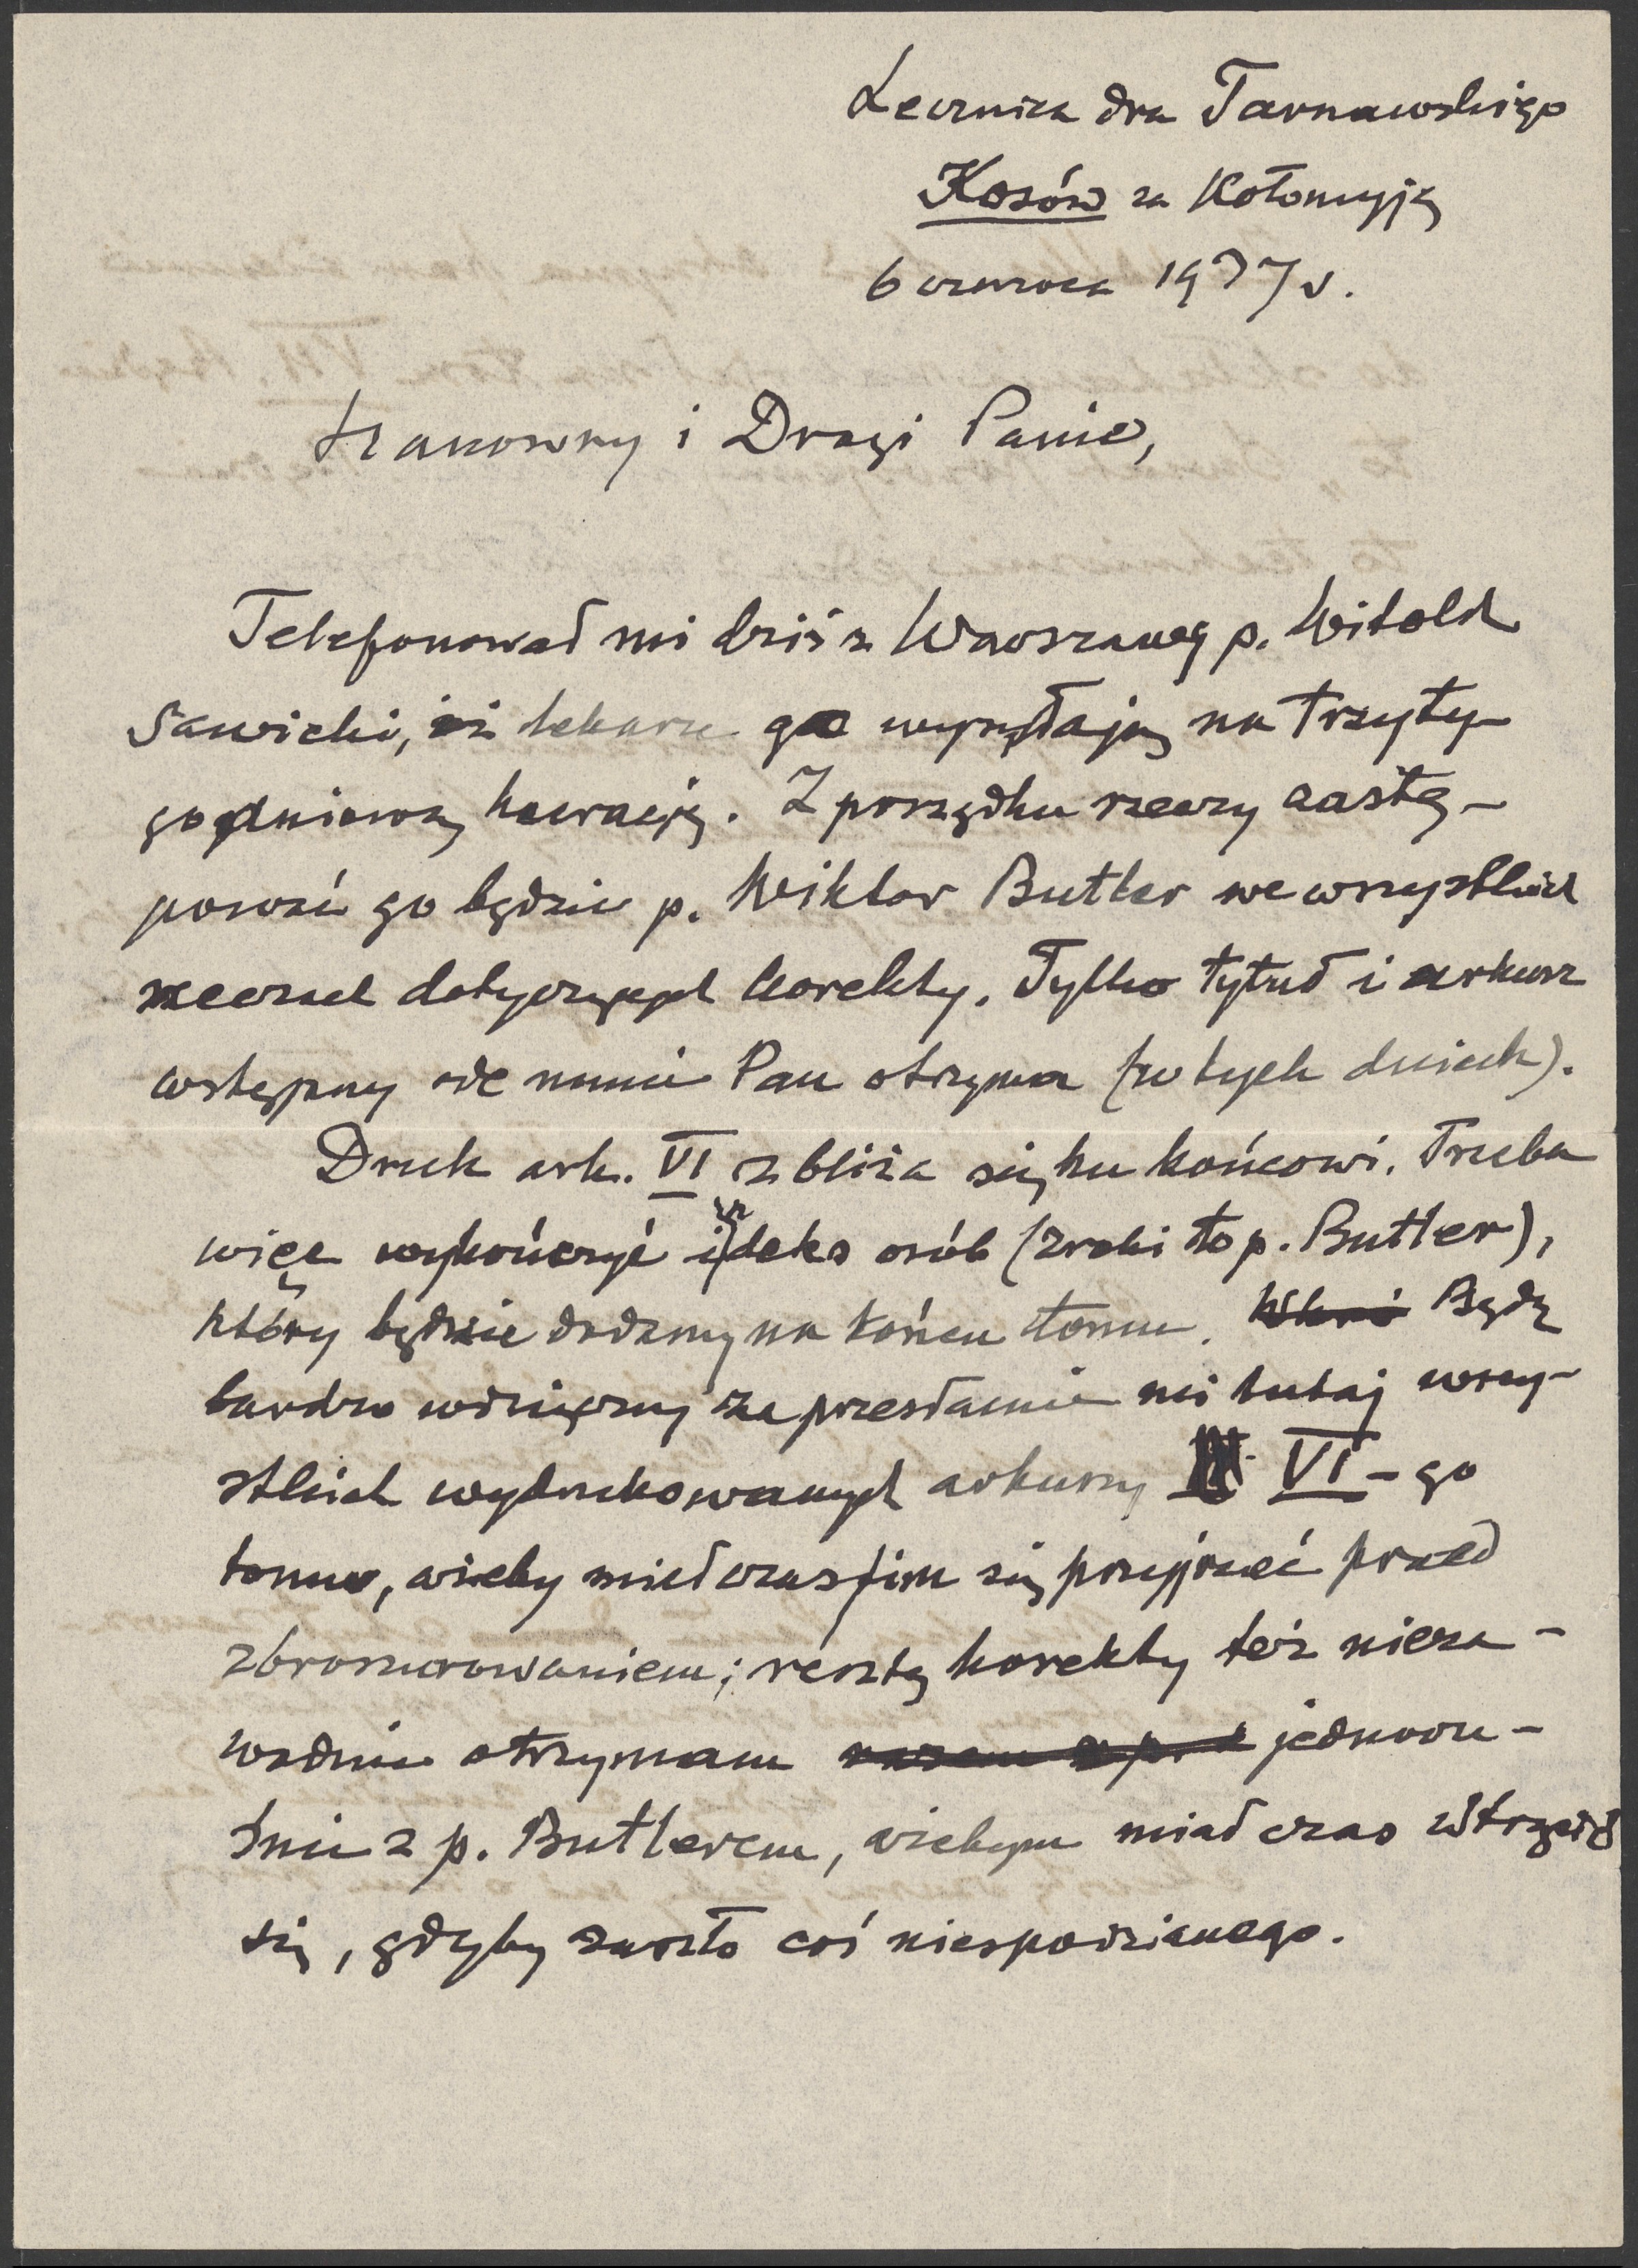 Lecznica dra Tarnawskiego
Kosów za Kołomyją
6 czerwca 1937 r.
Szanowny i Drogi Panie,
Telefonował mi dziś z Warszawy p. Witold
Sawicki, iż lekarze go wysyłają na trzyty-
godniową kurację. Z porządku rzeczy zastę-
pować go będzie p. Wiktor Butler we wszystkich
rzeczach dotyczących korekty. Tylko tytuł i arkusz
wstępny ode mnie Pan otrzyma (w tych dniach).
Druk ark. VI zbliża się ku końcowi. Trzeba
więc wykończyć indeks osób (zrobi to p. Butler),
który będzie dodany na końcu tomu. Będę
bardzo wdzięczny za przesłanie mi tutaj wszy-
stkich wydrukowanych arkuszy VI-go
tomu, ażeby mieć czas im się przyjrzeć przed
zbroszurowaniem; resztę korekty też nieza-
wodnie otrzymam jednocze-
śnie z p. Butlerem, ażebym miał czas wtrącić
się, gdyby zaszło coś niespodzianego.